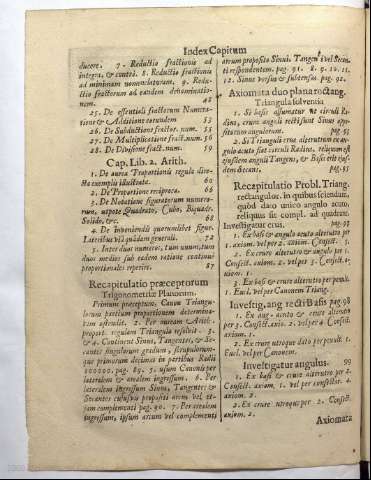 Index Capitum
ducere. 7. Reductio fractionis ad
integra, & contrà. 8. Reductio fractionis
ad minimam nomenclaturam. 9. Redu-
ctio fractorum ad eandem denominatio-
nem. 48
25. De essentiali fractorum Numera-
tione & Additione eorundem 53
26. De Subductione fractor. num. 55
27. De Multiplicatione fract. num. 56
28. De Divisione fract. num.
Cap. Lib. 2. Arith.
1. De aurea Proportionis regula dire-
cta exemplis illustrata. 60
2. De Proportione reciproca. 66
3. De Notatione figuratorum numero-
rum, utpote Quadrato, Cubo, Biquadr.
Solido, &c. 68
4. De inveniendis quorumlibet figur.
Lateribus via quâdam generali. 72
5. Inter duos numeros, tum unum, tum
duos medios sub eadem ratione continui
proportionales reperire. 87
Recapitulatio præceptorum
Trigonometriæ Planorum.
Primum præceptum. Canon Triangu-
lorum partium proportionem determina-
tam astruit. 2. Per auream Arith.
proport. regulam Triangula resolvit. 3.
& 4. Continent Sinus, Tangentes, & Se-
cantes singulorum graduum, scrupulorum-
que primorum decimis in partibus Radii
100000. pag. 89. 5. usum Canonis per
lateralem & arealem ingressum. 6. Per
lateralem ingressum Sinus, Tangentes &
Secantes cujusvis propositi arcus vel et-
iam complementi pag. 90. 7. Per arealem
ingressum, ipsum arcum vel complementi
arcum proposito Sinui, Tangenti vel Secan-
ti respondentem. pag. 91. 8. 9. 10. 11.
12. Sinus versus & subtensas. pag. 92.
Axiomata duo plana rectang.
Triangula solventia
1. Si basis assumatur ut circuli Ra-
dius, erunt anguli rectistant Sinus oppo-
sitorum angulorum. pag. 93
2. Si Trianguli crus alterutrum ex an-
gulo acuto fiat circuli Radius, reliquum est
ejusdem anguli Tangens, & Basis erit ejus-
dem Secans. pag. 95
Recapitulatio Probl. Triang.
rectangulor. in quibus scilicndum,
quòd dato unico angulo acuto,
reliquus sit compl. ad quadran.
Investigatur crus. pag. 97
1. Ex basi & angulo acuto alterutro per
1. axiom. vel per 2. axiom. Consect. 2.
2. Ex crure alterutro & angulo per 1.
Consect. axiom. 2. vel per 3. Consect.
axiom. 1.
3. Ex basi & crure alterutro per penult.
1. Eucl. vel per Canonem Triang.
Investig. ang. recti Basis pag. 98
1. Ex ang. acuto & crure alterutro
per 3. Consect. axio. 2. vel per 4. Consect.
axiom. 1.
2. Ex crure utroque dato per penult. 1.
Eucl. vel per Canonem.
Investigatur angulus. 99
1. Ex basi & crure alterutro per 2.
Consect. axiom. 1. vel per consectar. 4.
axiom. 2.
2. Ex crure utroque per 2. Consect.
axiom. 2.
Axiomata